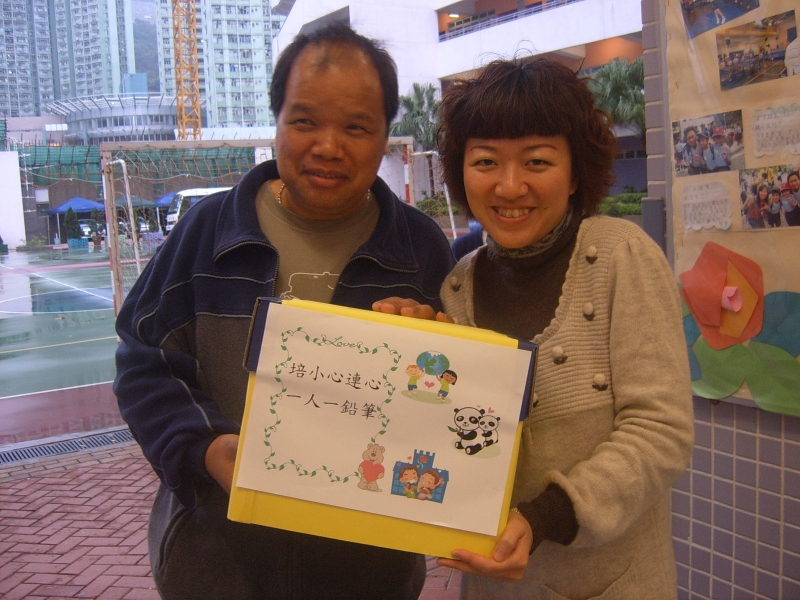 Love
培小心連心
一人一鉛筆